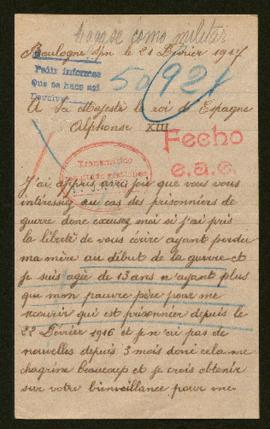 Cagase como militar
Boulogne s/m le 21 Février 1917
Pedir informes
Que se hace aqí
Devolver
50 921
A Sa Majesté le roi d'Espagne
Alphonse XIII
Fecho
e.a.e.
Transmitido
J'ai appris avec joie que vous vous
interessiez au cas des prisonniers de
guerre donc excusez moi si j'ai pris
la liberté de vous écrire ayant perdu
ma mère au début de la guerre et
je suis agée de 13 ans n'ayant plus
que mon pauvre père pour me
nourrir qui est prisonnier depuis le
22 Février 1916 et je n'ai pas de
nouvelles depuis 3 mois donc cela me
chagrine beaucoup et je crois obtenir
sur votre bienveillance pour me